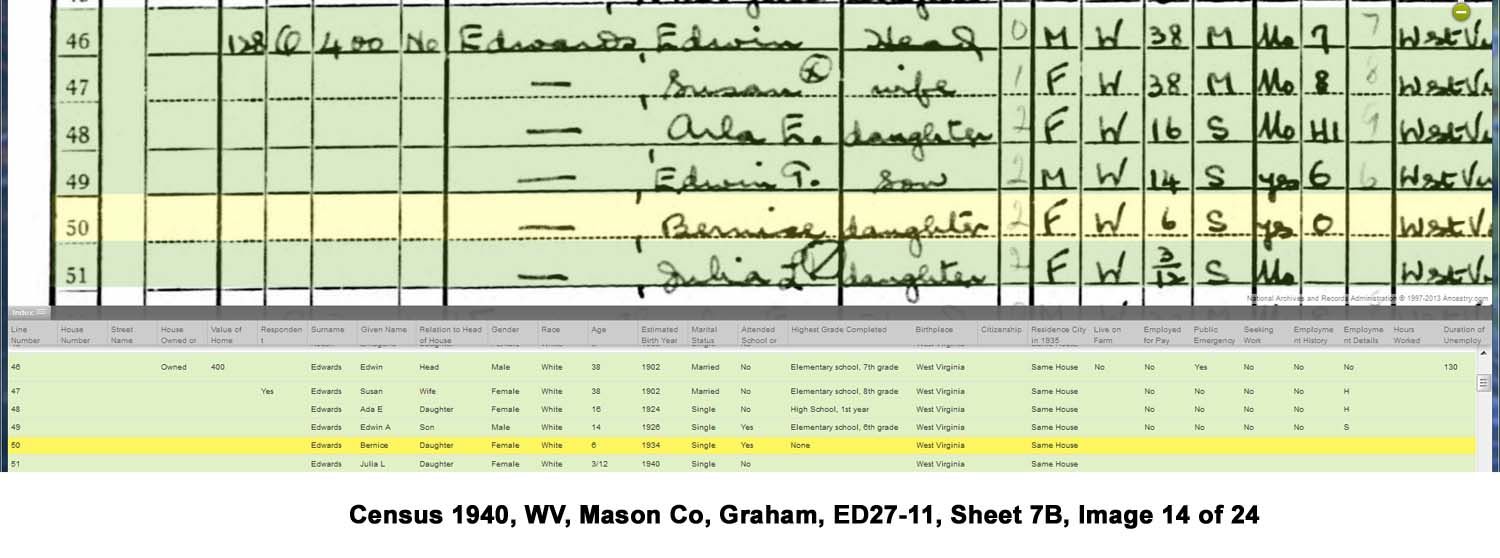 46 128 O 400 No Edwards, Edwin Head 0 M W 38 M No 7 7 West V
47 — , Susan ⓧ wife 1 F W 38 M No 8 8 West V
48 — Arla E. daughter 2 F W 16 S No H1 9 West V
49 — , Edwin T. Son 2 M W 14 S yes 6 6 West V
50 — , Bernice daughter 2 F W 6 S yes 0 West V.
51 — , Julia L daughter 2 F W 3/12 S No West V
National Archives and Records Administration ® 1997-2013 Ancestry.com
Index
Line Number House Number Street Name House Owned or Value of Home Responden t Surname Given Name Relation to Head of House Gender Race Age Estimated Birth Year Marital Status Attended School or Highest Grade Completed Birthplace Citizenship Residence City in 1935 Live on Farm Employed for Pay Public Emergency Seeking Work Employme nt History Employme nt Details Hours Worked Duration of Unemploy
46 Owned 400 Edwards Edwin Head Male White 38 1902 Married No Elementary school, 7th grade West Virginia Same House No No Yes No No No 130
47 Yes Edwards Susan Wife Female White 38 1902 Married No Elementary school, 8th grade West Virginia Same House No No No No H
48 Edwards Ada E Daughter Female White 16 1924 Single No High School, 1st year West Virginia Same House No No No No H
49 Edwards Edwin A Son Male White 14 1926 Single Yes Elementary school, 6th grade West Virginia Same House No No No No S
50 Edwards Bernice Daughter Female White 6 1934 Single Yes None West Virginia Same House
51 Edwards Julia L Daughter Female White 3/12 1940 Single No West Virginia Same House
Census 1940, WV, Mason Co, Graham, ED27-11, Sheet 7B, Image 14 of 24